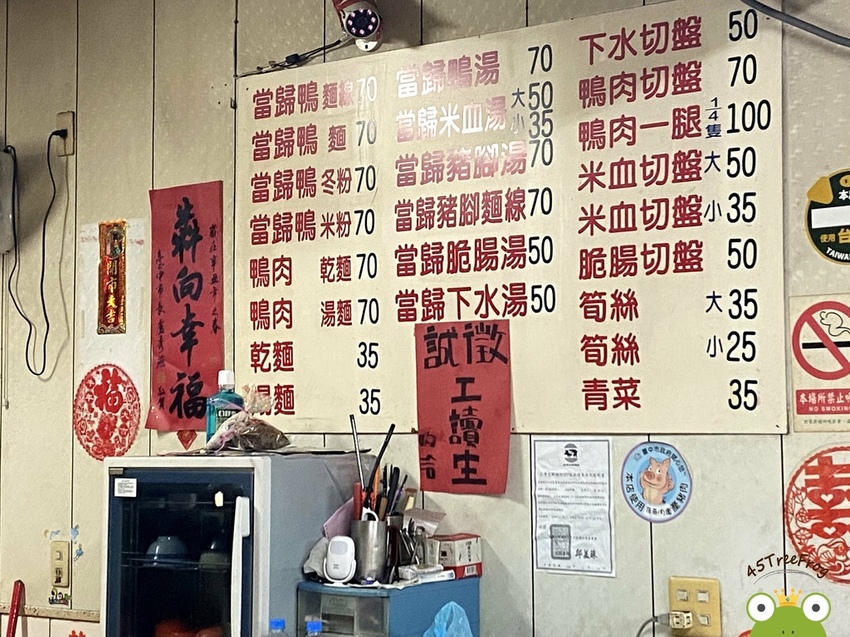 當歸鴨 麵線 70
當歸鴨 麵 70
當歸鴨 冬粉 70
當歸鴨 米粉 70
鴨肉 乾麵 70
鴨肉 湯麵 70
乾麵 35
湯麵 35
當歸鴨湯 70
當歸米血湯 大50 小35
當歸豬腳湯 70
當歸豬腳麵線 70
當歸脆腸湯 50
當歸下水湯 50
下水切盤 50
鴨肉切盤 70
鴨肉一腿 1/4隻 100
米血切盤 大 50
米血切盤 小 35
脆腸切盤 50
筍絲 大 35
筍絲 小 25
青菜 35
犇向幸福
開市大吉
福
誠徵
工讀生
使用
TAIWAN
本場所禁止吸菸
NO SMOKING
45TreeFrog